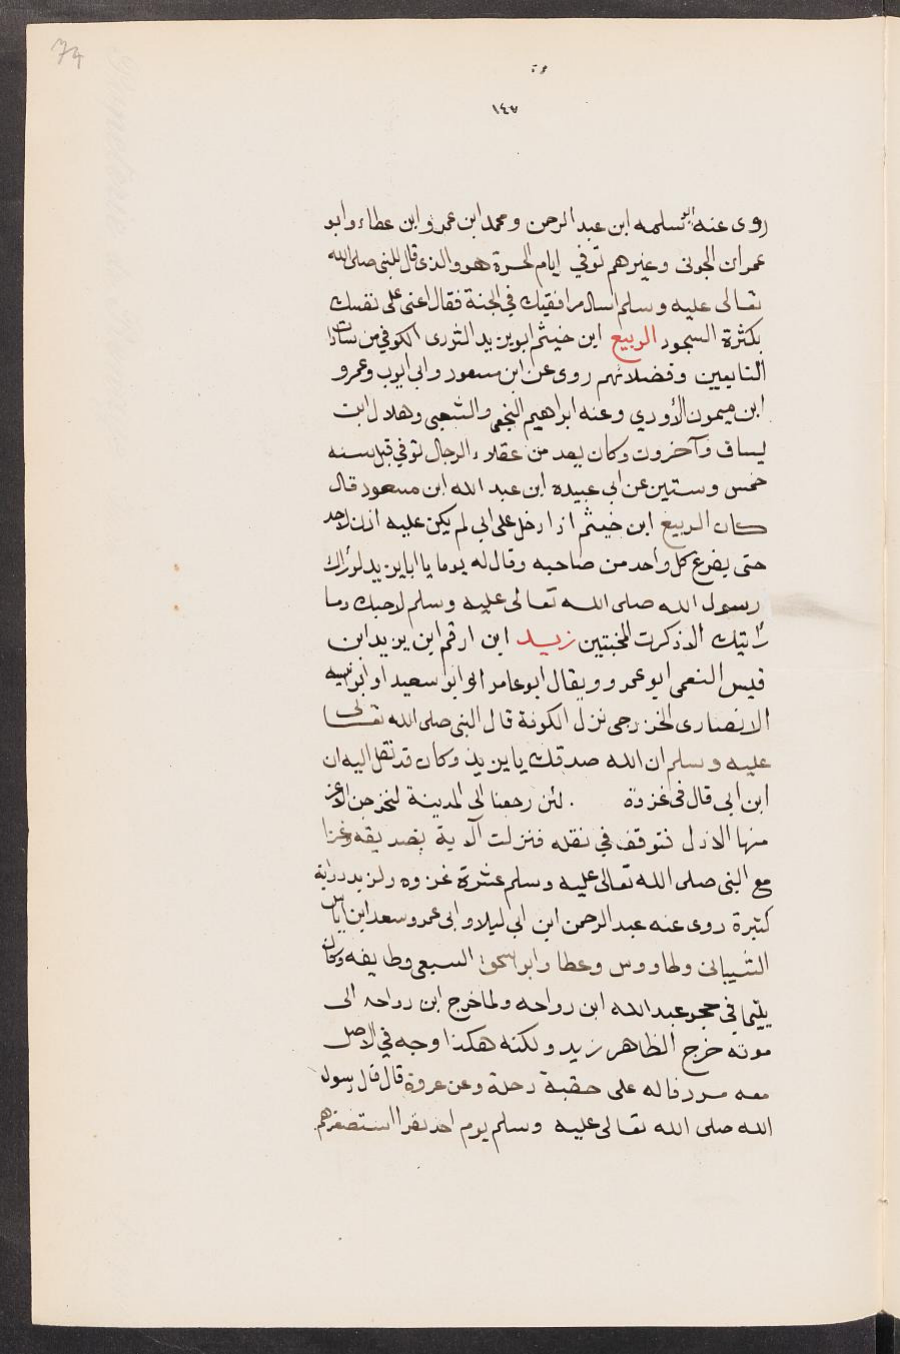 74
١٤٧
روى عنه ابو سلمه ابن عبد الرحمن ومحمد ابن عمرو ابن عطاء وابو
عمران الجونى وغيرهم توفي ايام الحرة هو والذى قال للنبى صلى الله
تعالى عليه وسلم اسال مرافقتك في الجنة فقال اعنى على نفسك
بكثرة السجود الربيع ابن خيثم ابو يزيد الثورى الكوفي من سادات
التابعين وفضلائهم روى عن ابن مسعود وابى ايوب وعمرو
ابن ميمون الأودي وعنه ابراهيم النخعى والشعبى وهلال ابن
يساف وآخرون وكان يعد من عقلاء الرجال توفي قبل سنه
خمس وستين عن ابى عبيده ابن عبد الله ابن مسعود قال
كان الربيع ابن خيثم اذا دخل على ابى لم يكن عليه اذن لاحد
حتى يفرغ كل واحد من صاحبه وقال له يوما يا ابا يزيد لو رآك
رسول الله صلى الله تعالى عليه وسلم لاحبك وما
رأيتك الا ذكرت المخبتين زيد ابن ارقم ابن يزيد ابن
قيس النعمى ابو عمرو ويقال ابو عامر او ابو سعيد او ابو انيسه
الانصارى الخزرجى نزل الكوفة قال النبى صلى الله تعالى
عليه وسلم ان الله صدقك يا زيد وكان قد نقل اليه ان
ابن ابى قال فى غزوة . لئن رجعنا الى المدينة ليخرجن الاعز
منها الاذل فتوقف في نقله فنزلت الآية بتصديقه وغزا
مع النبى صلى الله تعالى عليه وسلم عشرة غزوه ولزيد رواية
كثيرة روى عنه عبد الرحمن ابن ابى ليلا وابى عمرو سعد ابن اياس
الشيبانى وطاووس وعطا وابو اسحق السبعى وطايفه وكان
يتيما في حجر عبد الله ابن رواحه ولما خرج ابن رواحه الى
موته خرج الظاهر زيد ولكنه هكذا وجه في الاصل
معه مردفا له على حقبة رحلة وعن عروة قال قال رسول
الله صلى الله تعالى عليه وسلم يوم احد نفرا استصغرهم